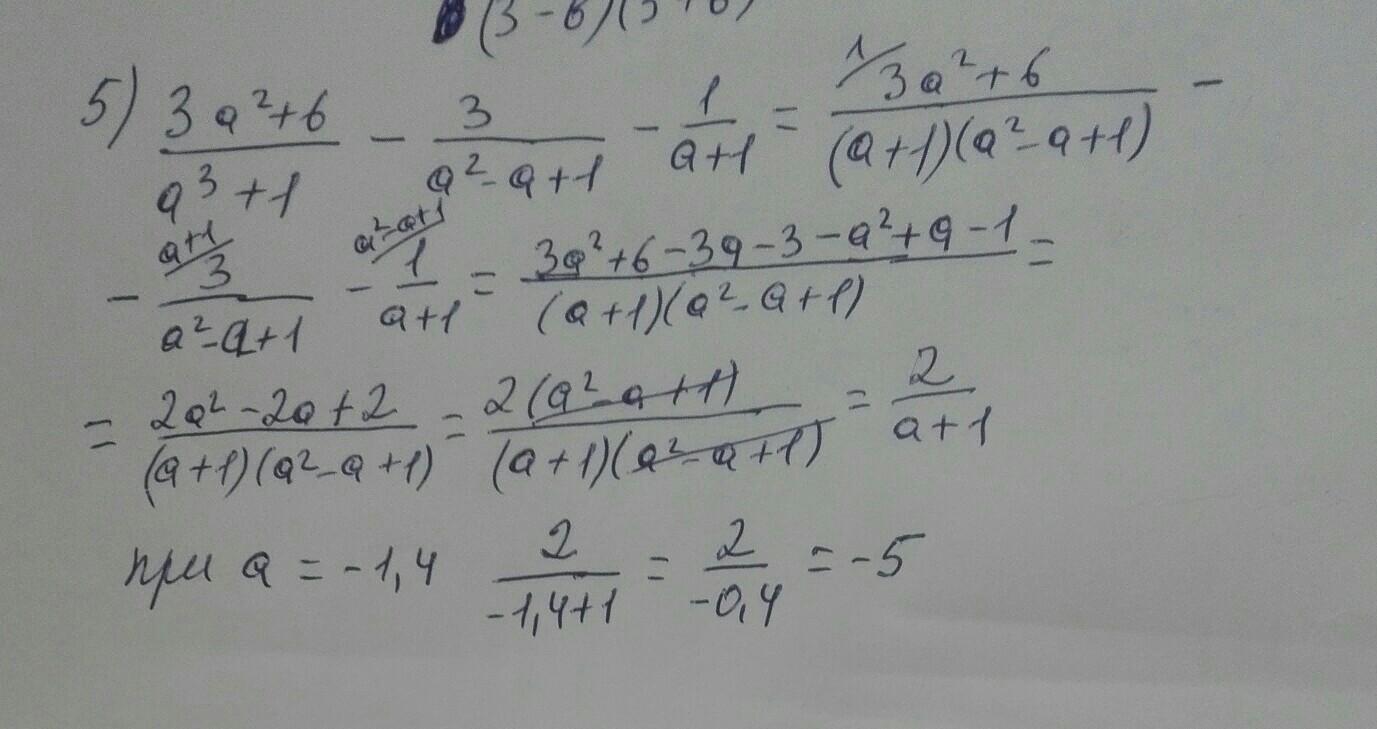 (3-б)(3+б)
5) (3a²+6)/(a³+1) - 3/(a²-a+1) - 1/(a+1) = ¹⁄(3a²+6)/((a+1)(a²-a+1)) -
- ᵃ⁺¹⁄3/(a²-a+1) - ᵃ²⁻ᵃ⁺¹⁄1/(a+1) = (3a²+6-3a-3-a²+a-1)/((a+1)(a²-a+1)) =
= (2a²-2a+2)/((a+1)(a²-a+1)) = 2(a²-a+1)/((a+1)(a²-a+1)) = 2/(a+1)
при a = -1,4 2/(-1,4+1) = 2/(-0,4) = -5